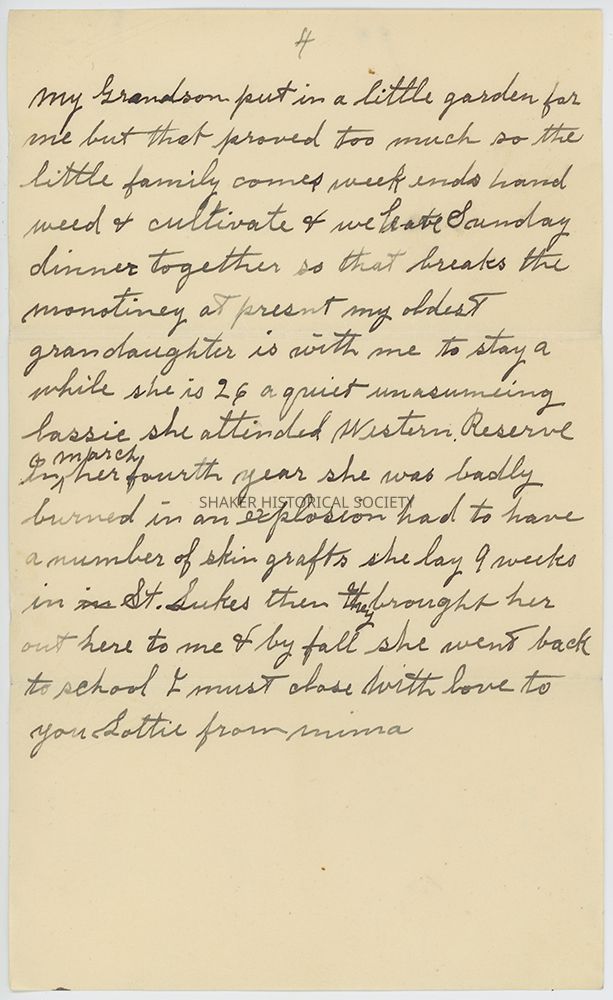 4
My Grandson put in a little garden for
me but that proved too much so the
little family comes week ends hand
weed & cultivate & we have Sunday
dinner together so that breaks the
monotiney at presnt my oldest
grandaughter is with me to stay a
while she is 26 a quiet unasumeing
lassie she attended Western Reserve
march
In her fourth year she was badly
SHAKER HISTORICAL SOCIETY
burned in an explosion had to have
a number of skin grafts she lay 9 weeks
in in St. Lukes then they brought her
out here to me & by fall she went back
to school I must close with love to
you Lottie from mima